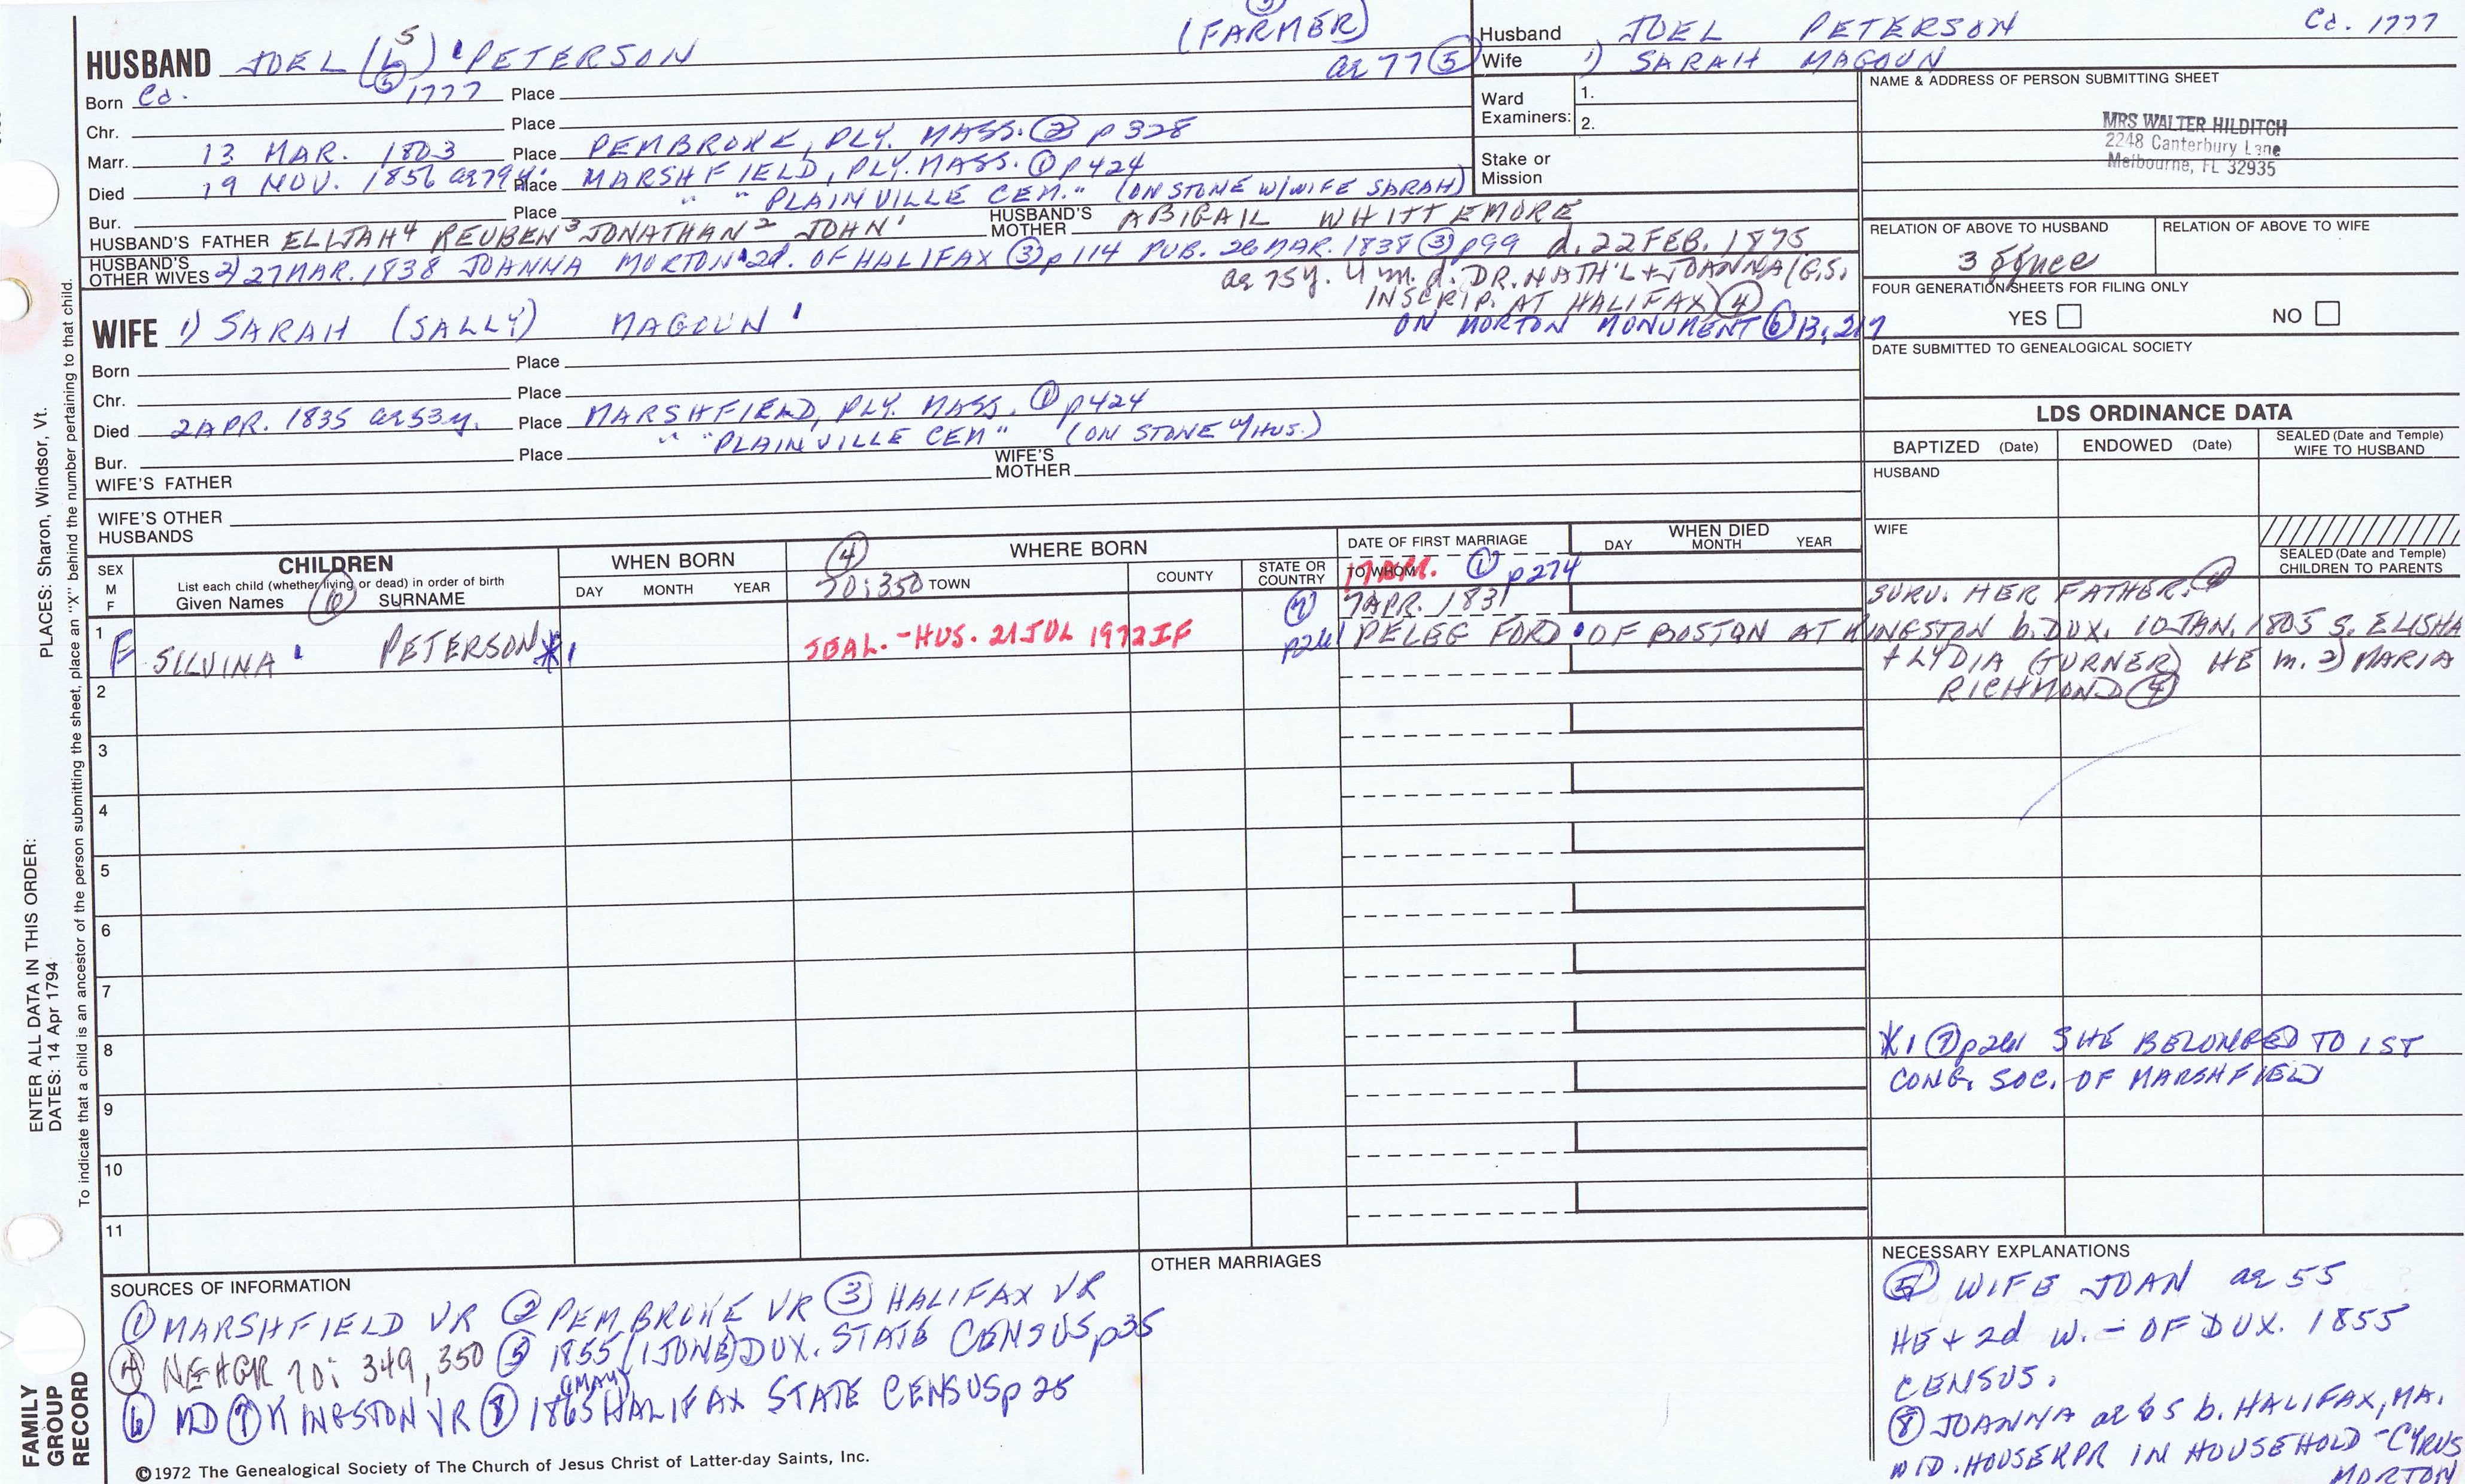 HUSBAND JOEL (5) PETERSON (FARMER) ae 77 (5)
Born Ca. 1777 Place
Chr. Place
Marr. 13 MAR. 1803 Place PEMBROKE, PLY. MASS. (2) p 328
Died 19 NOV. 1856 ae 79 y. Place MARSHFIELD, PLY. MASS. (1) p 424
Bur. Place " " PLAINVILLE CEM." (ON STONE W/WIFE SARAH)
HUSBAND'S FATHER ELIJAH 4 REUBEN 3 JONATHAN 2 JOHN 1 HUSBAND'S MOTHER ABIGAIL WHITTEMORE
HUSBAND'S OTHER WIVES 2) 27 MAR. 1838 JOANNA MORTON 2d. OF HALIFAX (3) p 114 PUB. 26 MAR. 1838 (3) p 99 d. 22 FEB. 1875
ae 75 y. 4 m. d. DR. NATH'L + JOANNA (G.S.
INSCRIP. AT HALIFAX) (4)
ON MORTON MONUMENT (6) 13:217
WIFE 1) SARAH (SALLY) MAGOUN
Born Place
Chr. Place
Died 2 APR. 1835 ae 53 y. Place MARSHFIELD, PLY. MASS. (1) p 424
Bur. Place " "PLAINVILLE CEM" (ON STONE W/HUS.)
WIFE'S FATHER WIFE'S MOTHER
WIFE'S OTHER HUSBANDS
Husband JOEL PETERSON Ca. 1777
Wife 1) SARAH MAGOUN
Ward Examiners: 1.
2.
Stake or Mission
NAME & ADDRESS OF PERSON SUBMITTING SHEET
MRS WALTER HILDITCH
2248 Canterbury Lane
Melbourne, FL 32935
RELATION OF ABOVE TO HUSBAND RELATION OF ABOVE TO WIFE
FOUR GENERATION SHEETS FOR FILING ONLY
YES NO
DATE SUBMITTED TO GENEALOGICAL SOCIETY
LDS ORDINANCE DATA
BAPTIZED (Date) ENDOWED (Date) SEALED (Date and Temple) WIFE TO HUSBAND
HUSBAND
WIFE
SEALED (Date and Temple) CHILDREN TO PARENTS
SEX M F
CHILDREN
List each child (whether living or dead) in order of birth
Given Names (6) SURNAME
WHEN BORN
DAY MONTH YEAR
(4) WHERE BORN
70:350 TOWN COUNTY STATE OR COUNTRY
DATE OF FIRST MARRIAGE
TO WHOM (1) p 274
WHEN DIED
DAY MONTH YEAR
1 F SILVINA PETERSON *1
SEAL.-HUS. 21 JUL 1972 IF
(7) p 261
7 APR. 1831
PELEG FORD OF BOSTON AT KINGSTON b. DUX. 10 JAN. 1805 S. ELISHA
+ LYDIA (TURNER) HE m. 2) MARIA
RICHMOND (4)
SURV. HER FATHER. (4)
2
3
4
5
6
7
8
9
10
11
*1 (7) p 261 SHE BELONGED TO 1ST
CONG. SOC. OF MARSHFIELD
SOURCES OF INFORMATION
(1) MARSHFIELD VR (2) PEMBROKE VR (3) HALIFAX VR
(4) NEHGR 70: 349, 350 (5) 1855 (1 JUNE) DUX. STATE CENSUS p 35
(6) MD (7) KINGSTON VR (8) 1865 (MAY) HALIFAX STATE CENSUS p 25
OTHER MARRIAGES
NECESSARY EXPLANATIONS
(5) WIFE JOAN ae 55
HE + 2d W. - OF DUX. 1855
CENSUS.
(8) JOANNA ae 65 b. HALIFAX, MA.
WID. HOUSEKPR IN HOUSEHOLD - CYRUS
MORTON
©1972 The Genealogical Society of The Church of Jesus Christ of Latter-day Saints, Inc.
FAMILY GROUP RECORD
ENTER ALL DATA IN THIS ORDER:
DATES: 14 Apr 1794
PLACES: Sharon, Windsor, Vt.
To indicate that a child is an ancestor of the person submitting the sheet, place an "X" behind the number pertaining to that child.